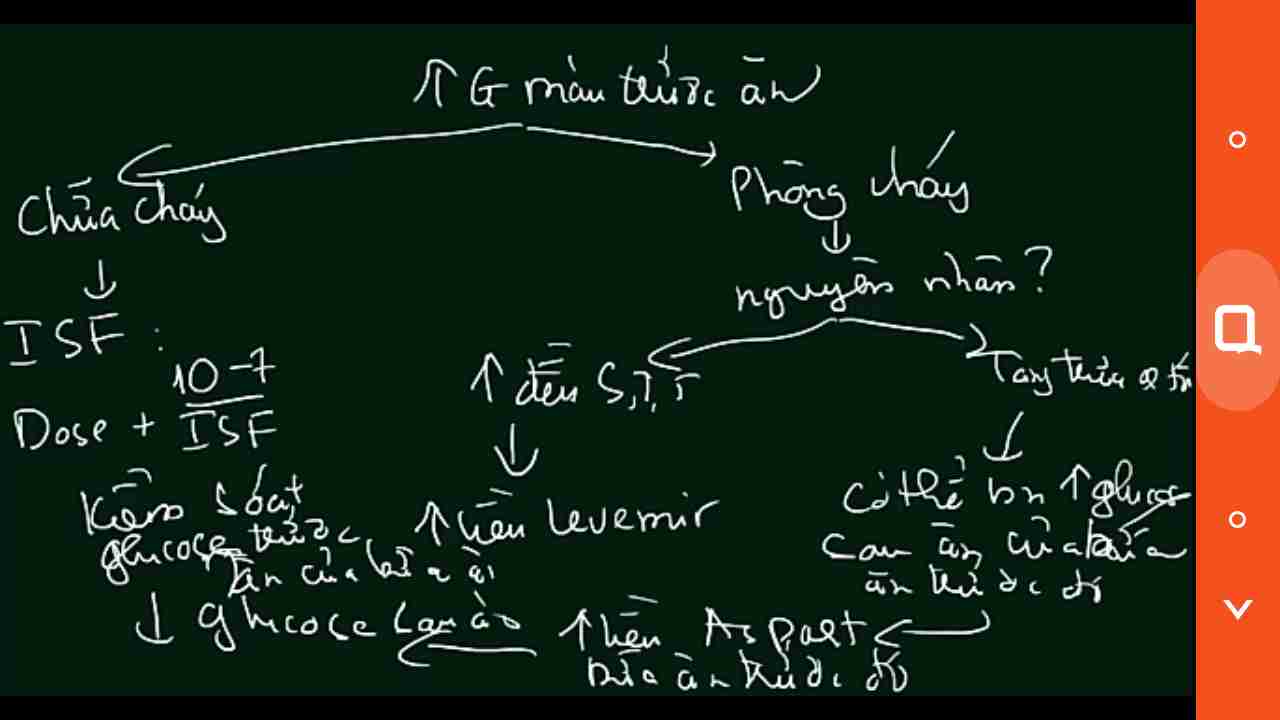 ↑ G máu trước ăn
Chữa cháy
↓
ISF :
Dose + 10-7 / ISF
Kiểm soát
glucose trước
ăn của bữa
↓ glucose
Phòng cháy
↓
nguyên nhân?
↑ đều S, T, T
↓
↑ liều Levemir
↓
Có thể bn ↑ glucose
sau ăn của bữa
ăn trước đó
↑ liều Aspart
bữa ăn trước đó